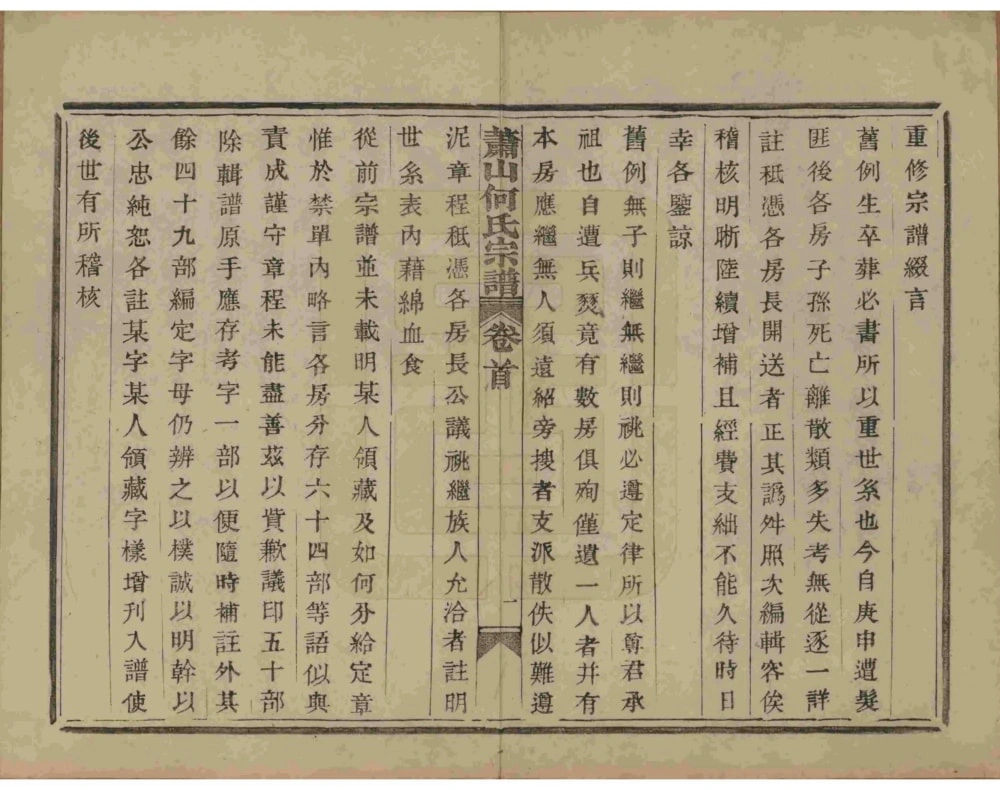 重修宗譜綴言
舊例生卒葬必書所以重世系也今自庚申遭髮
匪後各房子孫死亡離散類多失考無從逐一詳
註秖憑各房長開送者正其譌舛照次編輯容俟
稽核明晰陸續增補且經費支絀不能久待時日
幸各鑒諒
舊例無子則繼無繼則祧必遵定律所以尊君承
祖也自遭兵燹竟有數房俱殉僅遺一人者并有
本房應繼無人須遠紹旁搜者支派散佚似難遵
蕭山何氏宗譜 卷首 一
泥章程秖憑各房長公議祧繼族人允洽者註明
世系表內藉綿血食
從前宗譜並未載明某人領藏及如何分給定章
惟於禁單內略言各房分存六十四部等語似與
責成謹守章程未能盡善茲以貲歉議印五十部
除輯譜原手應存考字一部以便隨時補註外其
餘四十九部編定字母仍辨之以樸誠以明幹以
公忠純恕各註某字某人領藏字樣增刊入譜使
後世有所稽核